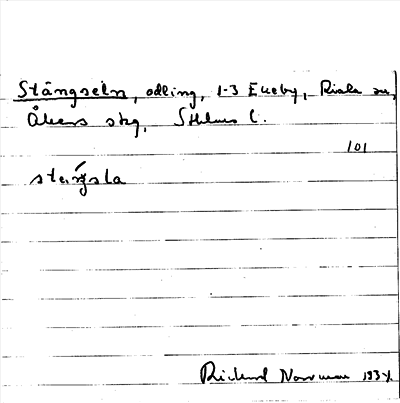 Stängseln, odling, 1-3 Ekeby, Riala sn,
Åkers skg, Sthlms l.
101
Richard Norrman